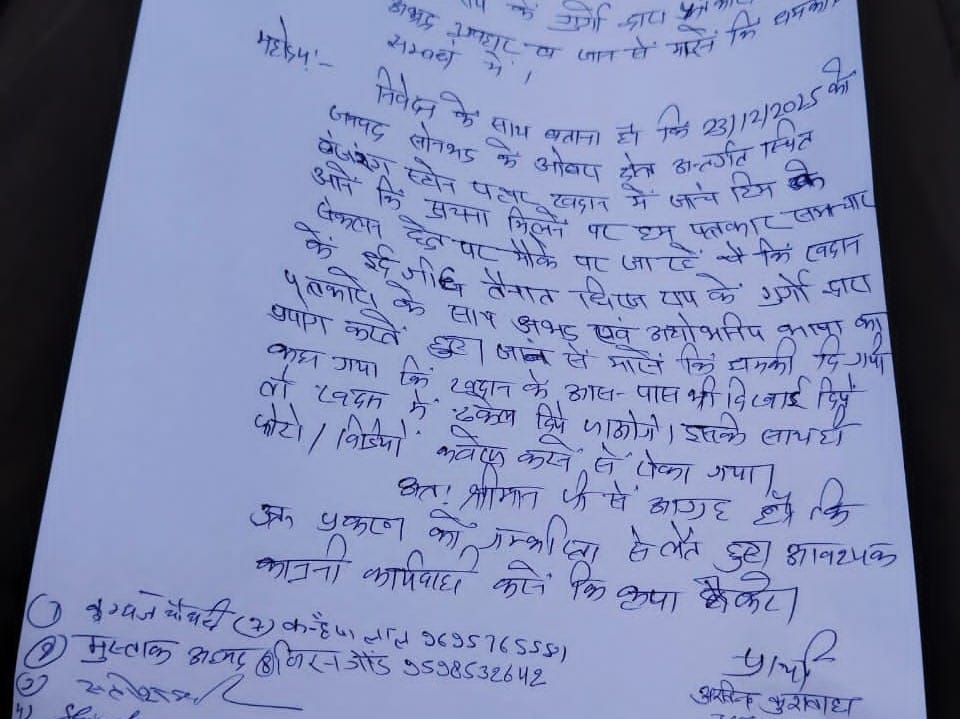 के गुर्गो द्वारा
अभद्र व्यवहार व जान से मारने कि धमकी
सम्बन्ध में।
महोदय:-
निवेदन के साथ बताना है कि 23/12/2025 को
जनपद सोनभद्र के ओबरा क्षेत्र अन्तर्गत स्थित
बजरंग स्टोन पत्थर खदान में जांच टिम के
आने कि सूचना मिलने पर हम पत्रकार समाचार
संकलन हेतु पर मौके पर जा रहें थे कि खदान
के इर्द गीर्द तैनात के गुर्गो द्वारा
पत्रकारों के साथ अभद्र एवं अशोभनिय भाषा का
प्रयोग करतें हुए। जान सें मारनें कि धमकी दि गयी
कहा गया कि खदान के आस-पास भी दिखाई दिये
तो खदान में ढकेल दिये जाओगे। इसके साथ ही
फोटो/विडियो कवरेज करने से रोका गया।
अतः श्रीमान जी से आग्रह है कि
उक्त प्रकरण को गम्भीरता से लेते हुए आवश्यक
कानूनी कार्यवाही करनें कि कृपा करें।
① चौधरी (7) कन्हैया लाल 9695765551
② मुस्ताक अहमद ⑧ गौंड 9598532642
③
4)
प्रार्थी
कुशवाहा